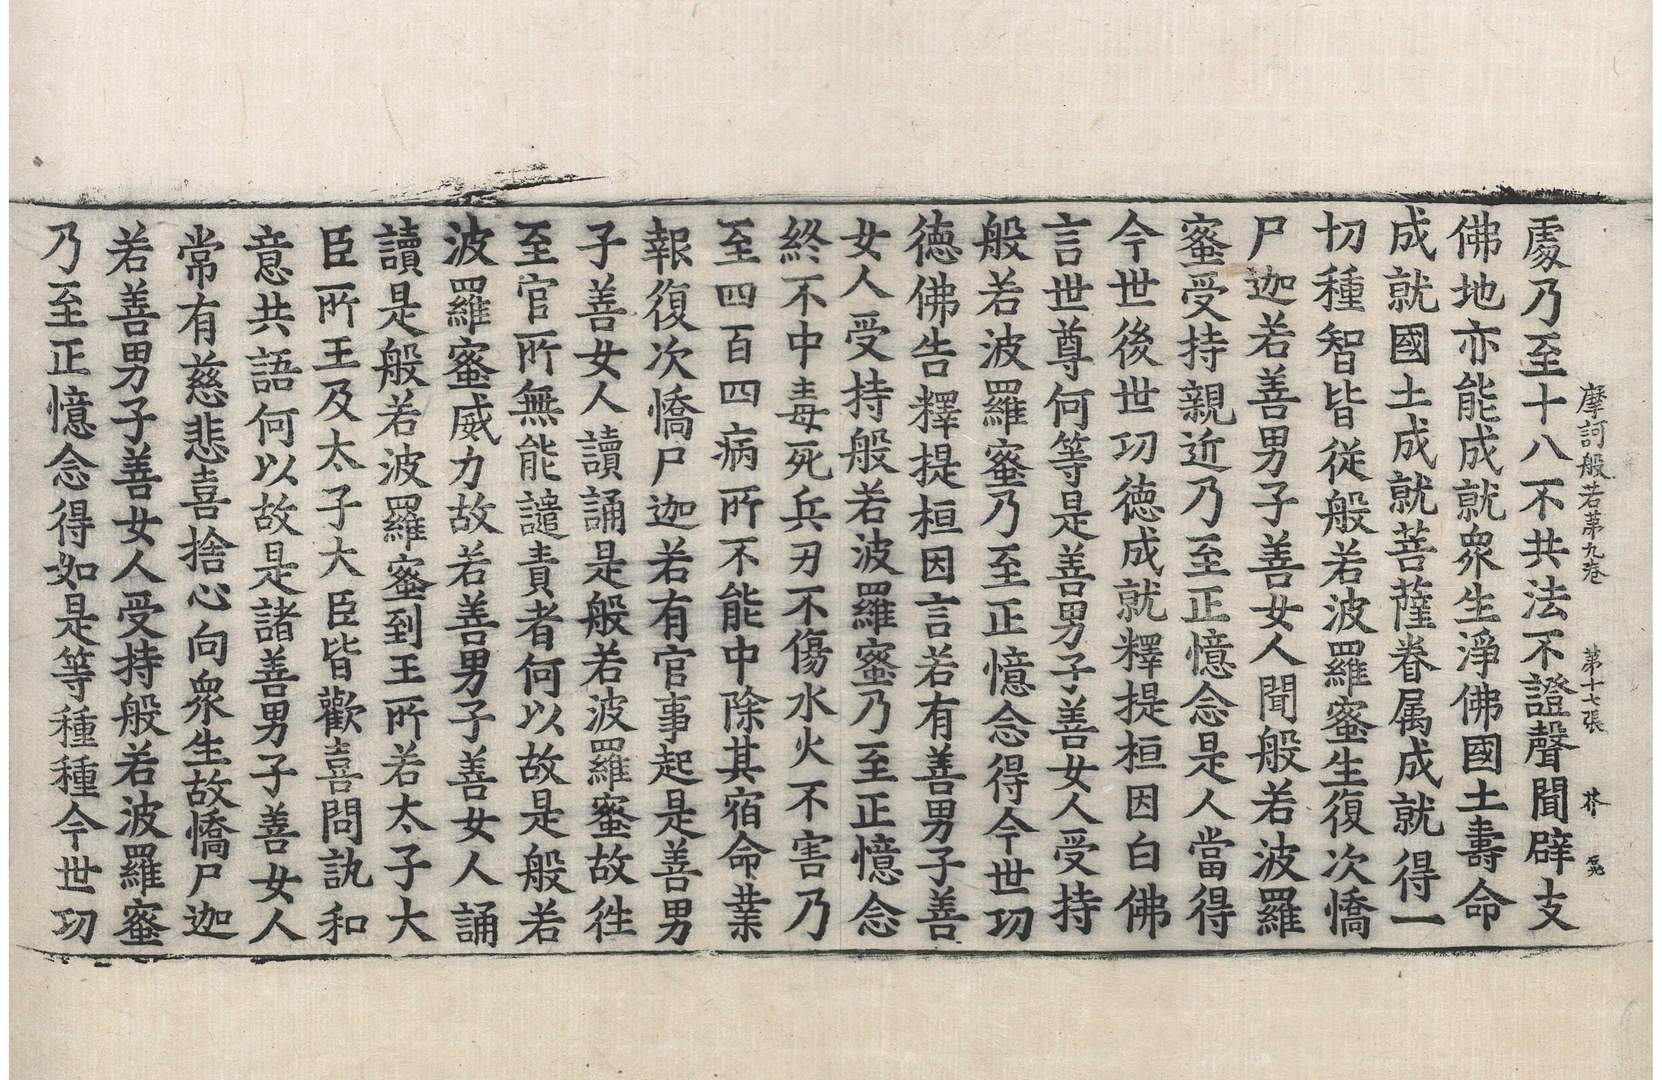 摩訶般若第九卷　第十七張　芥
處乃至十八不共法不證聲聞辟支
佛地亦能成就眾生淨佛國土壽命
成就國土成就菩薩眷属成就得一
切種智皆從般若波羅蜜生復次憍
尸迦若善男子善女人聞般若波羅
蜜受持親近乃至正憶念是人當得
今世後世功德成就釋提桓因白佛
言世尊何等是善男子善女人受持
般若波羅蜜乃至正憶念得今世功
德佛告釋提桓因言若有善男子善
女人受持般若波羅蜜乃至正憶念
終不中毒死兵刃不傷水火不害乃
至四百四病所不能中除其宿命業
報復次憍尸迦若有官事起是善男
子善女人讀誦是般若波羅蜜故往
至官所無能譴責者何以故是般若
波羅蜜威力故若善男子善女人誦
讀是般若波羅蜜到王所若太子大
臣所王及太子大臣皆歡喜問訊和
意共語何以故是諸善男子善女人
常有慈悲喜捨心向眾生故憍尸迦
若善男子善女人受持般若波羅蜜
乃至正憶念得如是等種種今世功